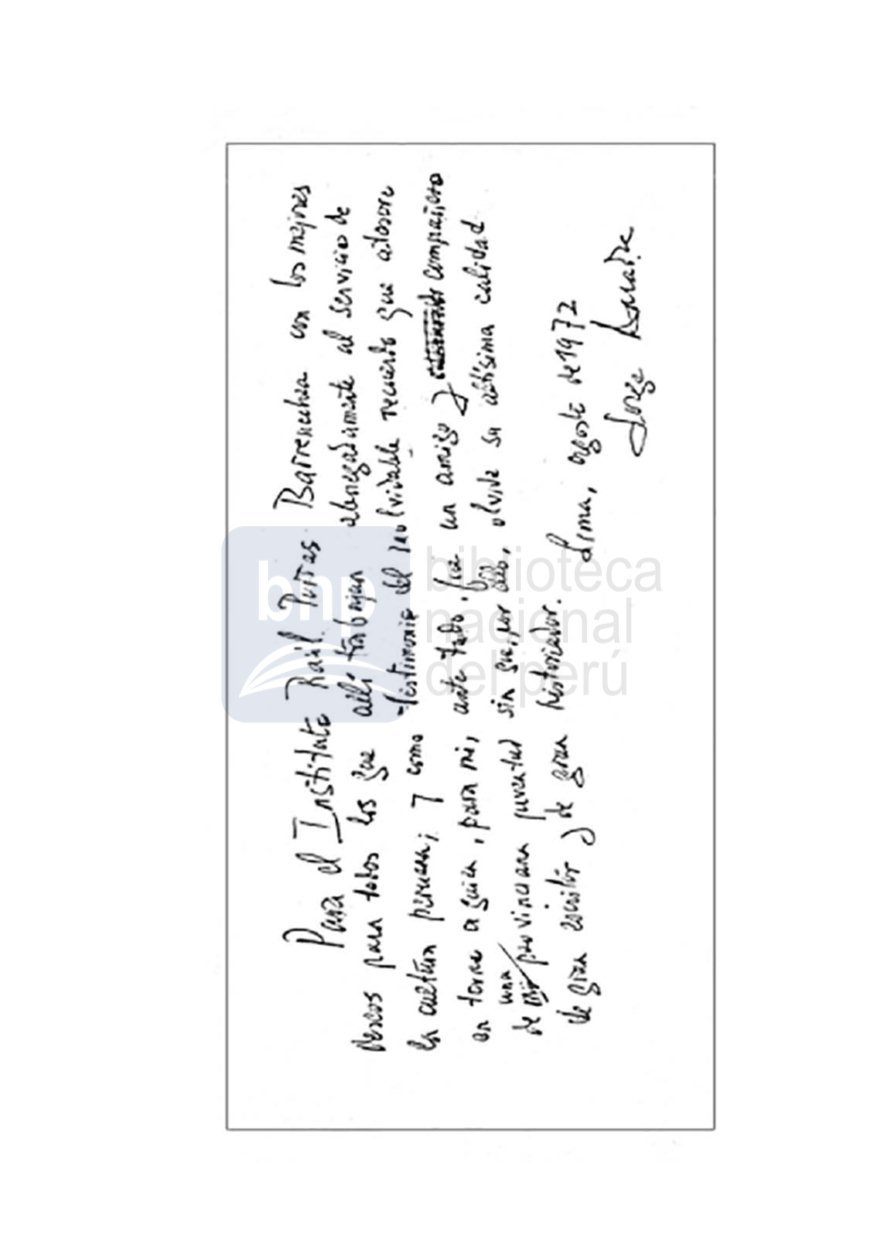 Para el Instituto Raúl Porras Barrenechea con los mejores
deseos para todos los que allí trabajan abnegadamente al servicio de
la cultura peruana; y como testimonio del inolvidable recuerdo que atesoro
en torno a quien, para mí, ante todo, fue un amigo y compañero
de una provinciana juventud sin que, por ello, olvide su altísima calidad
de gran escritor y de gran historiador.
Lima, agosto de 1972
Jorge Basadre
bnp
biblioteca
nacional
del perú